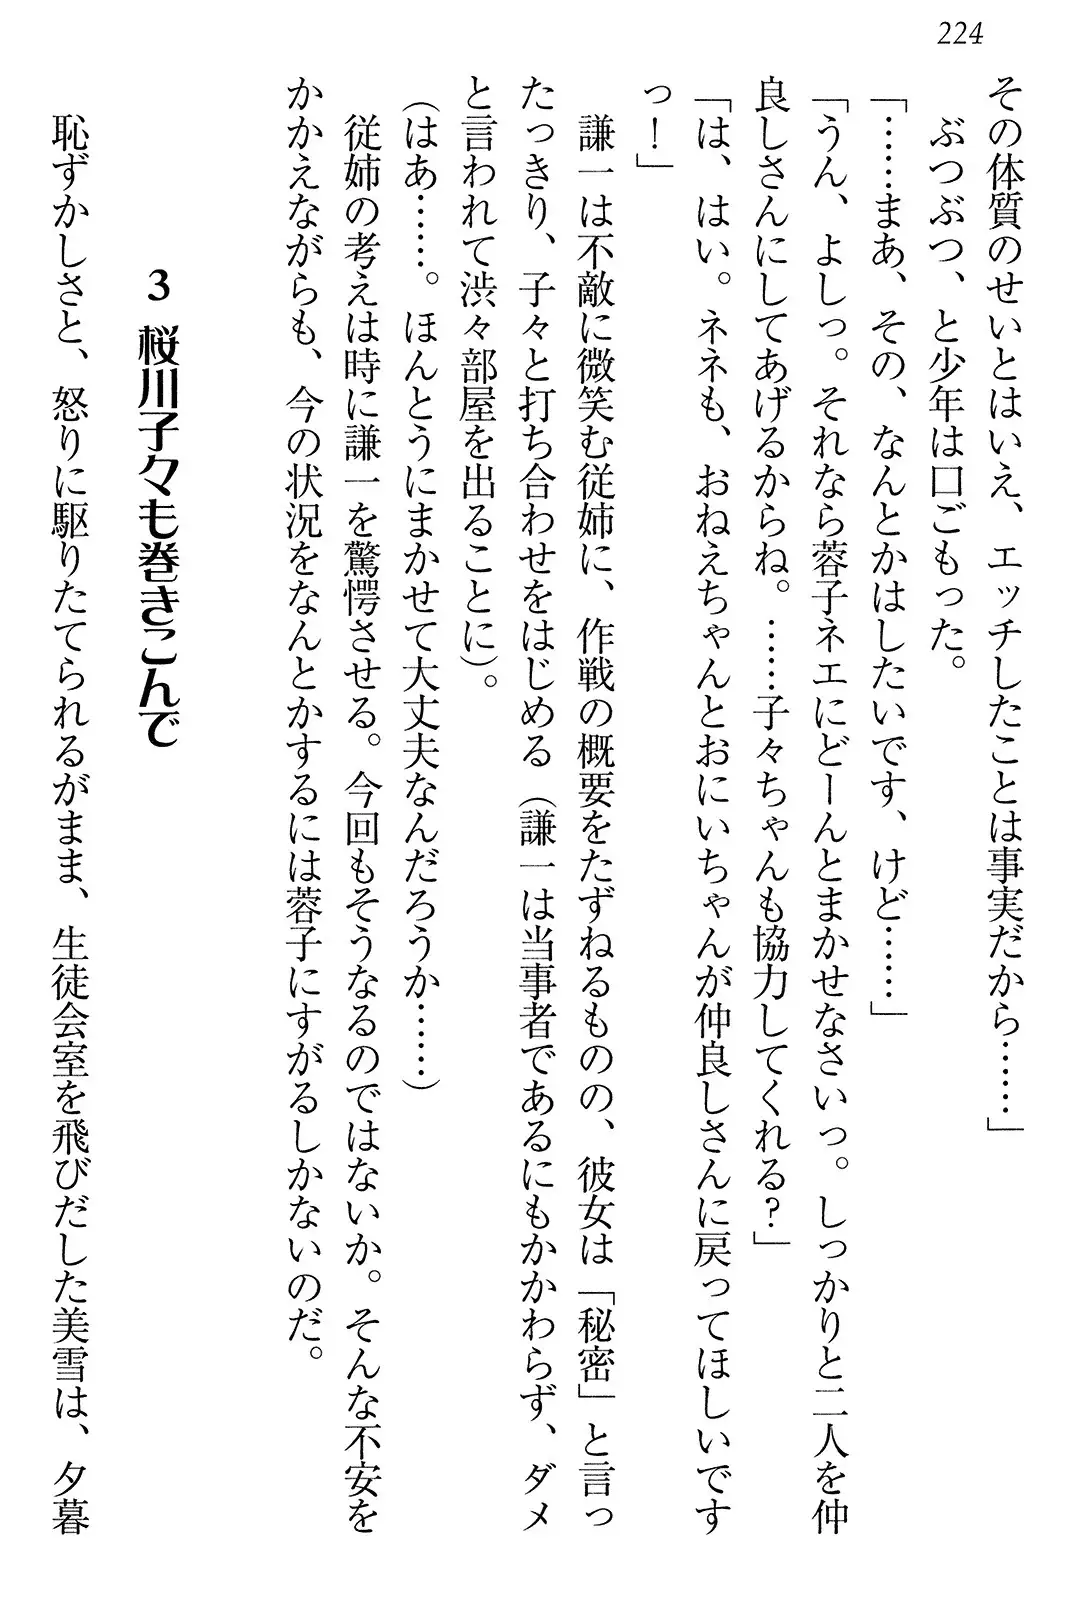 224
その体質のせいとはいえ、エッチしたことは事実だから……」
ぶつぶつ、と少年は口ごもった。
「……まあ、その、なんとかはしたいです、けど……」
「うん、よしっ。それなら蓉子ネエにどーんとまかせなさいっ。しっかりと二人を仲
良しさんにしてあげるからね。……子々ちゃんも協力してくれる？」
「は、はい。ネネも、おねえちゃんとおにいちゃんが仲良しさんに戻ってほしいです
っ！」
謙一は不敵に微笑む従姉に、作戦の概要をたずねるものの、彼女は「秘密」と言っ
たっきり、子々と打ち合わせをはじめる（謙一は当事者であるにもかかわらず、ダメ
と言われて渋々部屋を出ることに）。
（はあ……。ほんとうにまかせて大丈夫なんだろうか……）
従姉の考えは時に謙一を驚愕させる。今回もそうなるのではないか。そんな不安を
かかえながらも、今の状況をなんとかするには蓉子にすがるしかないのだ。
3 桜川子々も巻きこんで
恥ずかしさと、怒りに駆りたてられるがまま、生徒会室を飛びだした美雪は、夕暮